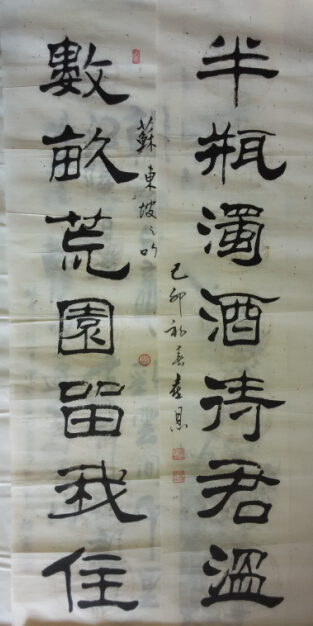 半瓶濁酒待君温
己卯初春
蘇東坡之吟
數畝荒園留我住